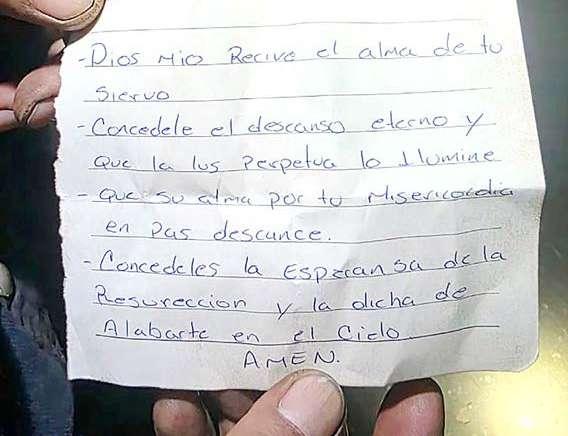 - Dios Mio Recive el alma de tu
Siervo
- Concedele el descanso eterno y
que la lus Perpetua lo Ilumine
- que su alma por tu Misericordia
en pas descance.
- Concedeles la Esperansa de la
Resureccion y la dicha de
Alabarte en el Cielo
AMEN.